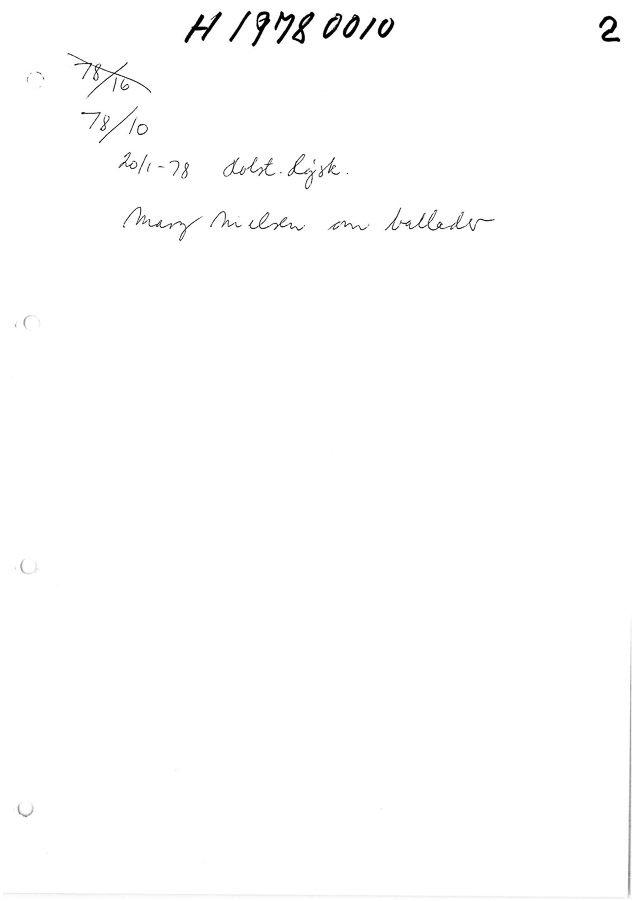 H 1978 0010 2
78/16
78/10
20/1-78 Holst. Lysk.
Mary Nielsen om ballader